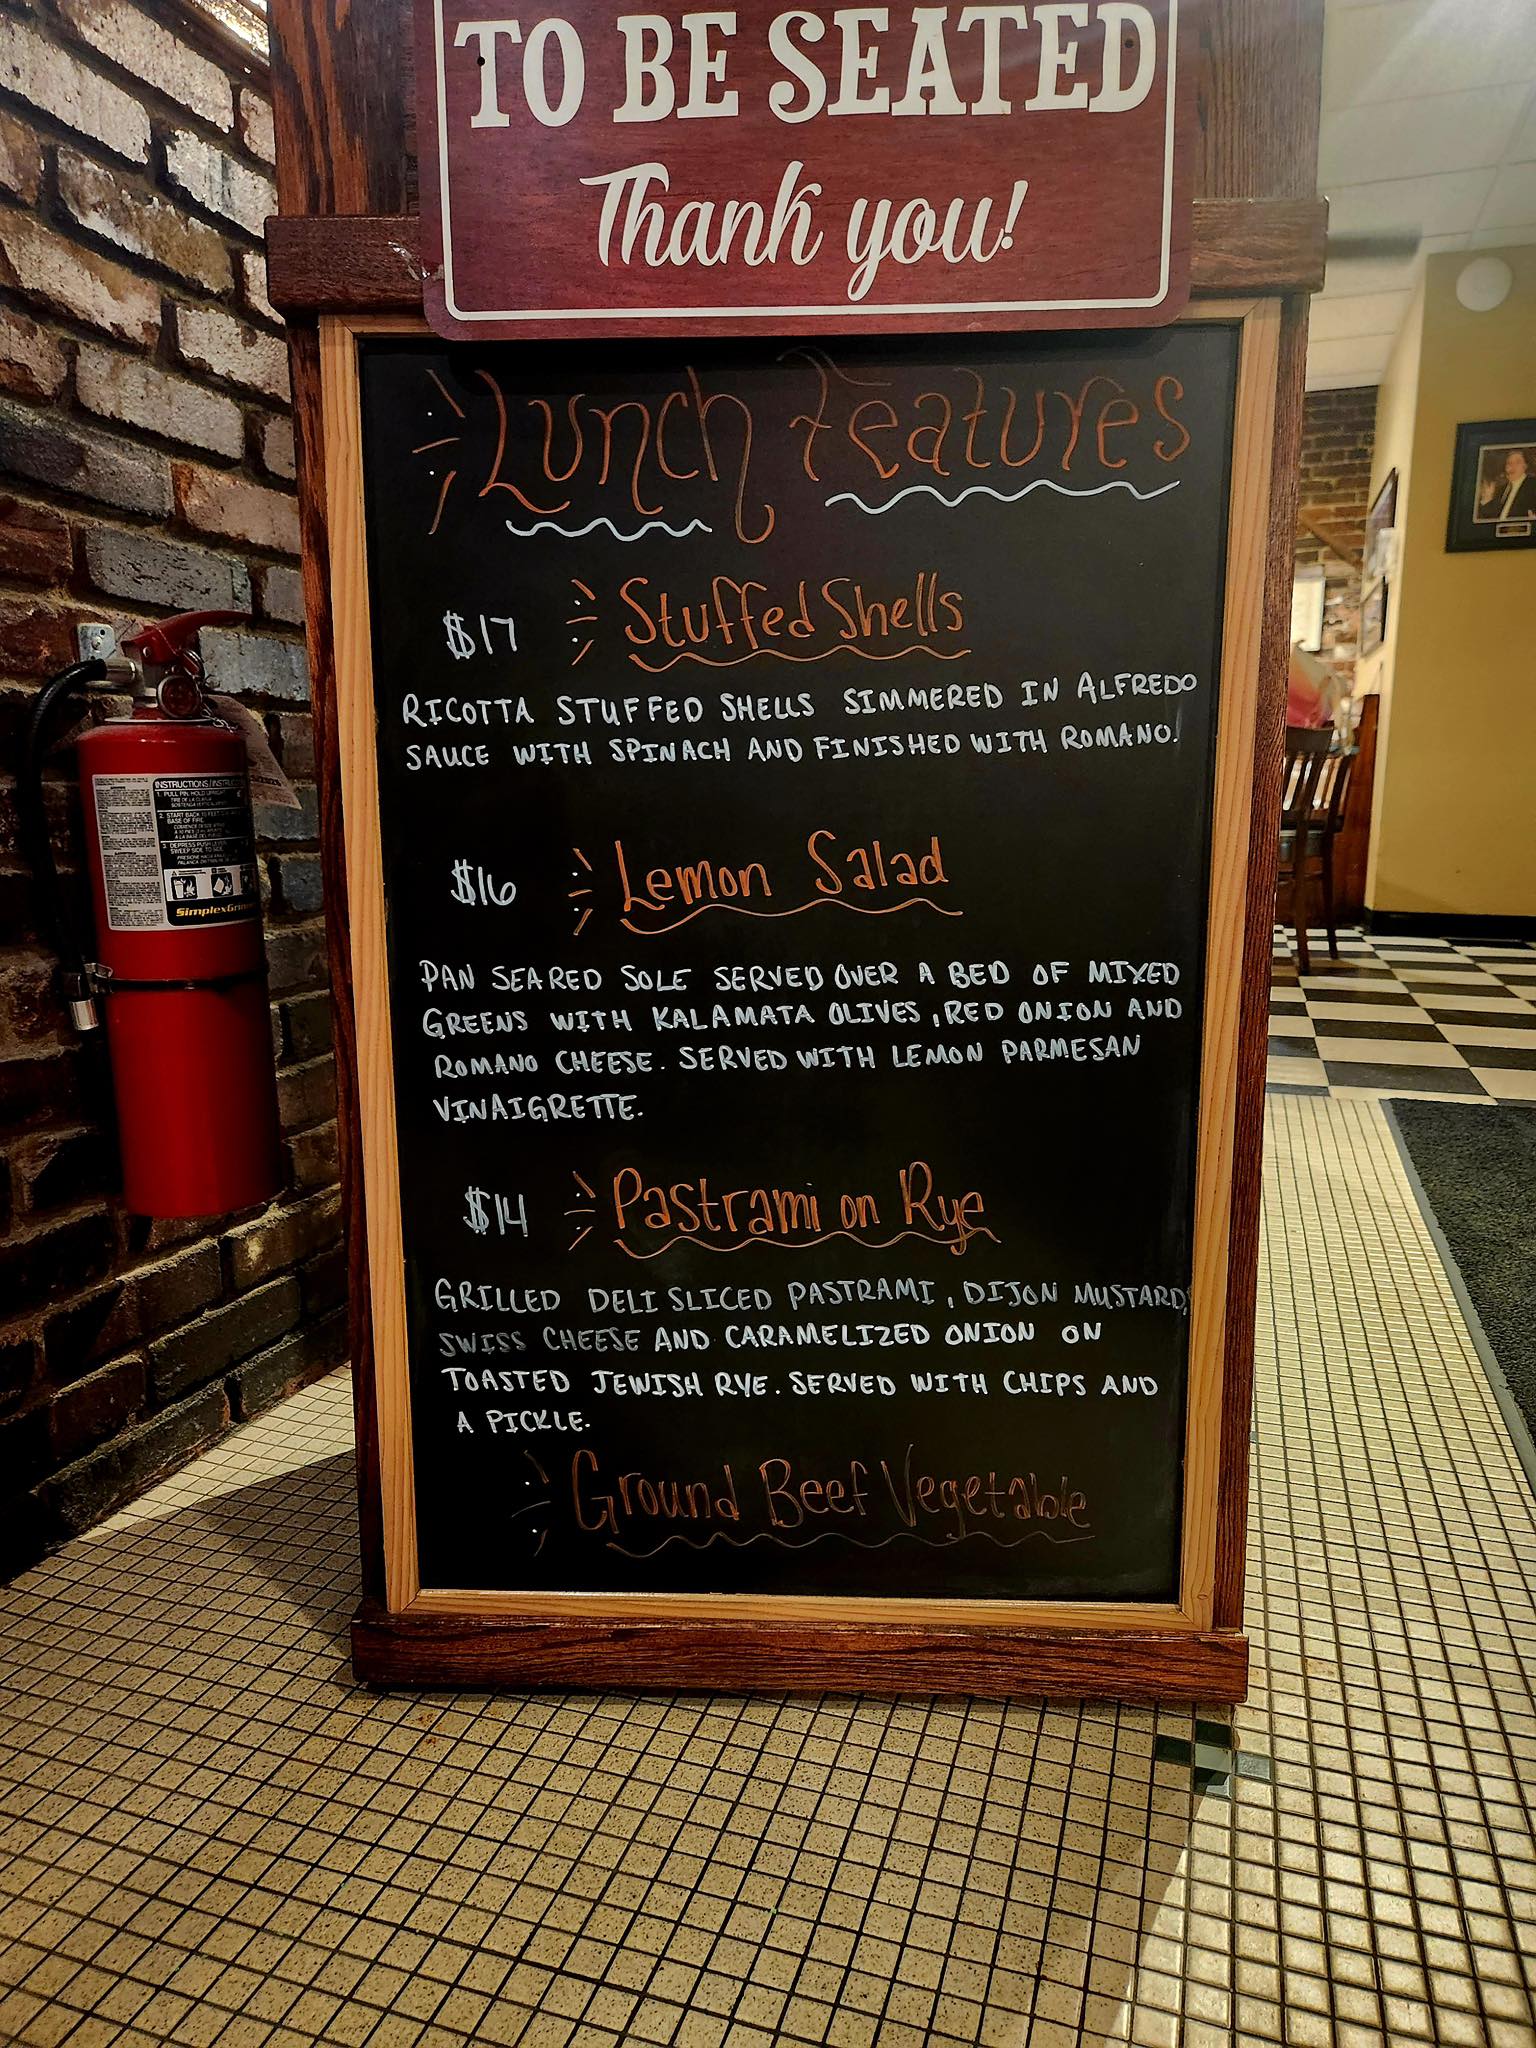 TO BE SEATED
Thank you!
Lunch Features
$17 Stuffed Shells
RICOTTA STUFFED SHELLS SIMMERED IN ALFREDO
SAUCE WITH SPINACH AND FINISHED WITH ROMANO.
$16 Lemon Salad
PAN SEARED SOLE SERVED OVER A BED OF MIXED
GREENS WITH KALAMATA OLIVES, RED ONION AND
ROMANO CHEESE. SERVED WITH LEMON PARMESAN
VINAIGRETTE.
$14 Pastrami on Rye
GRILLED DELI SLICED PASTRAMI, DIJON MUSTARD,
SWISS CHEESE AND CARAMELIZED ONION ON
TOASTED JEWISH RYE. SERVED WITH CHIPS AND
A PICKLE.
Ground Beef Vegetable
INSTRUCTIONS
1. PULL PIN, HOLD UPRIGHT
2. START BACK
BASE OF FIRE
SWEEP SIDE TO SIDE